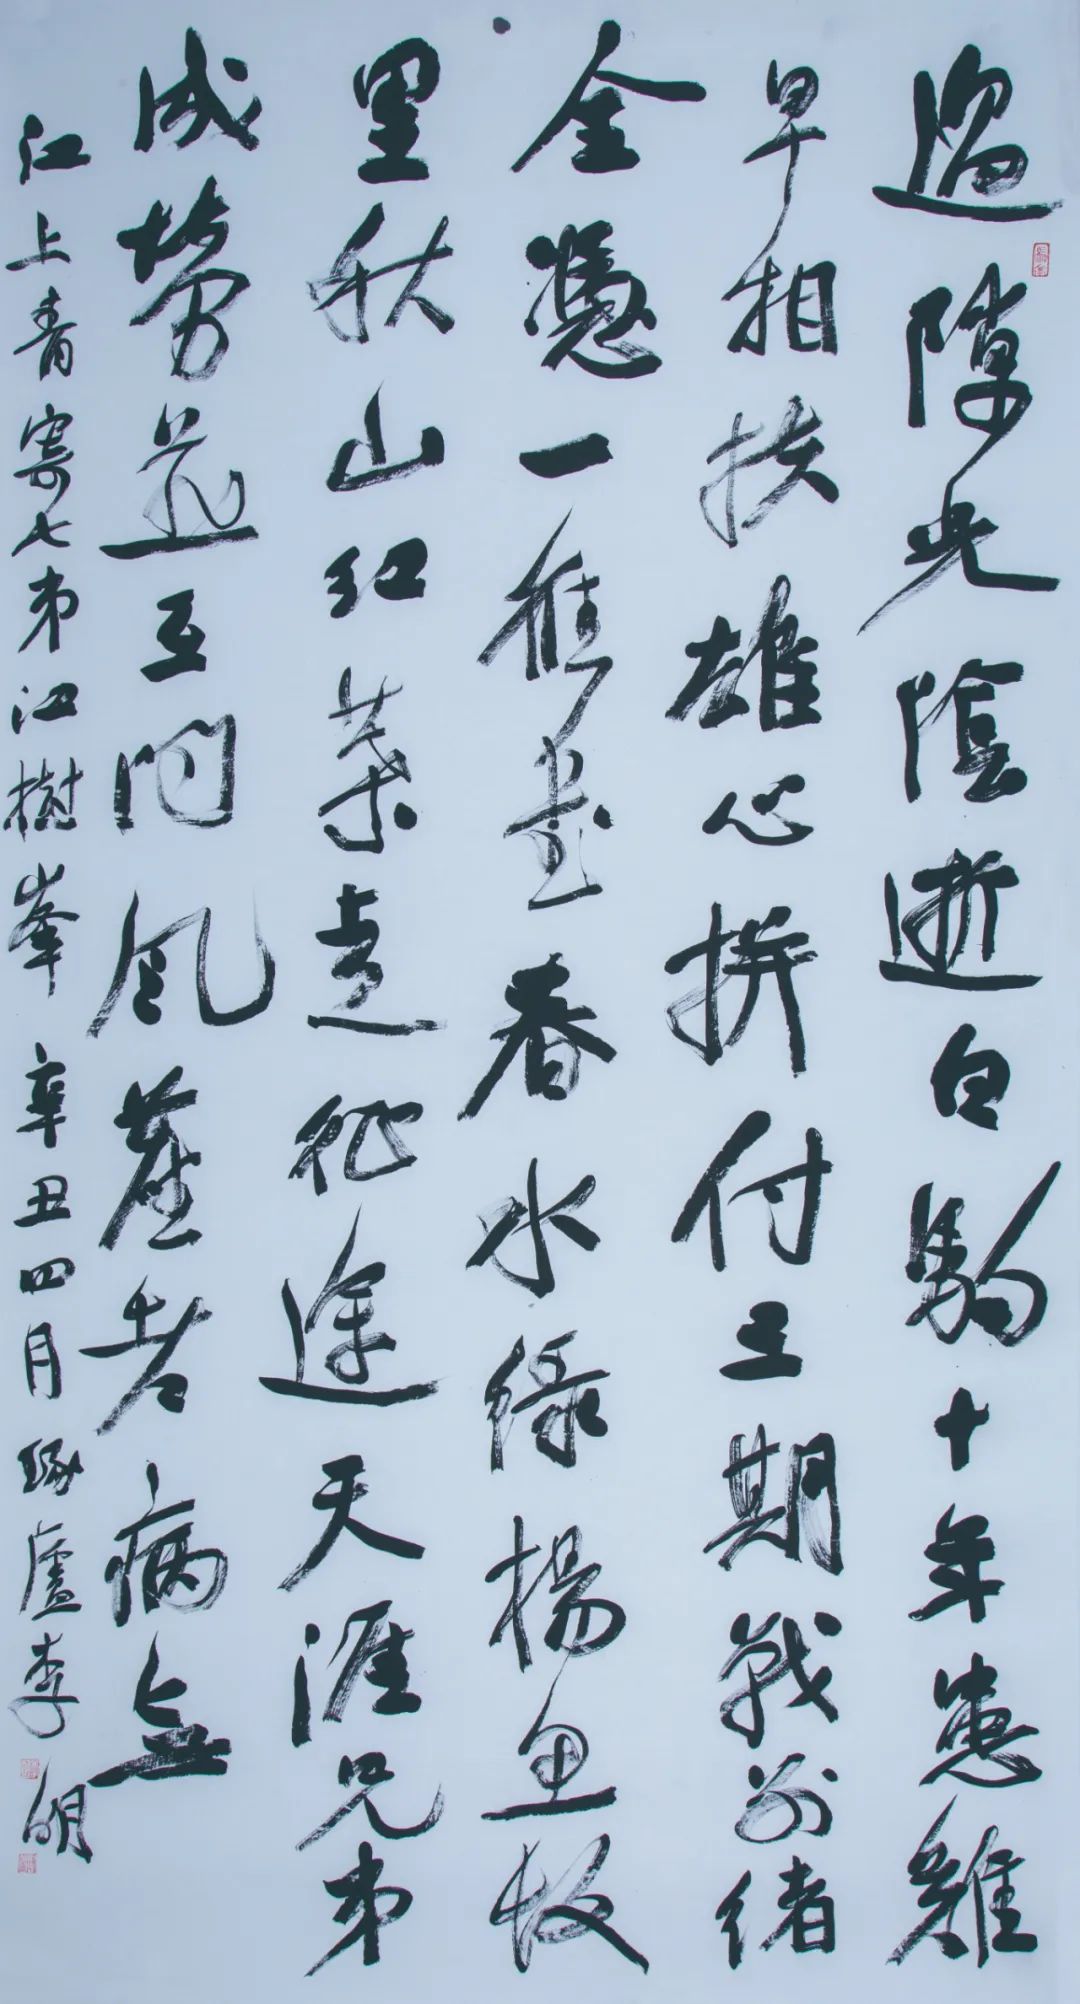 過隙光陰逝白駒十年患難
早相扶雄心拼付三期戰別緒
全憑一雁書春水綠楊思故
里秋山紅葉走征途天涯兄弟
成勞燕互問風塵老病無
江上青寄七弟江樹峯 辛丑四月 琢廬李明